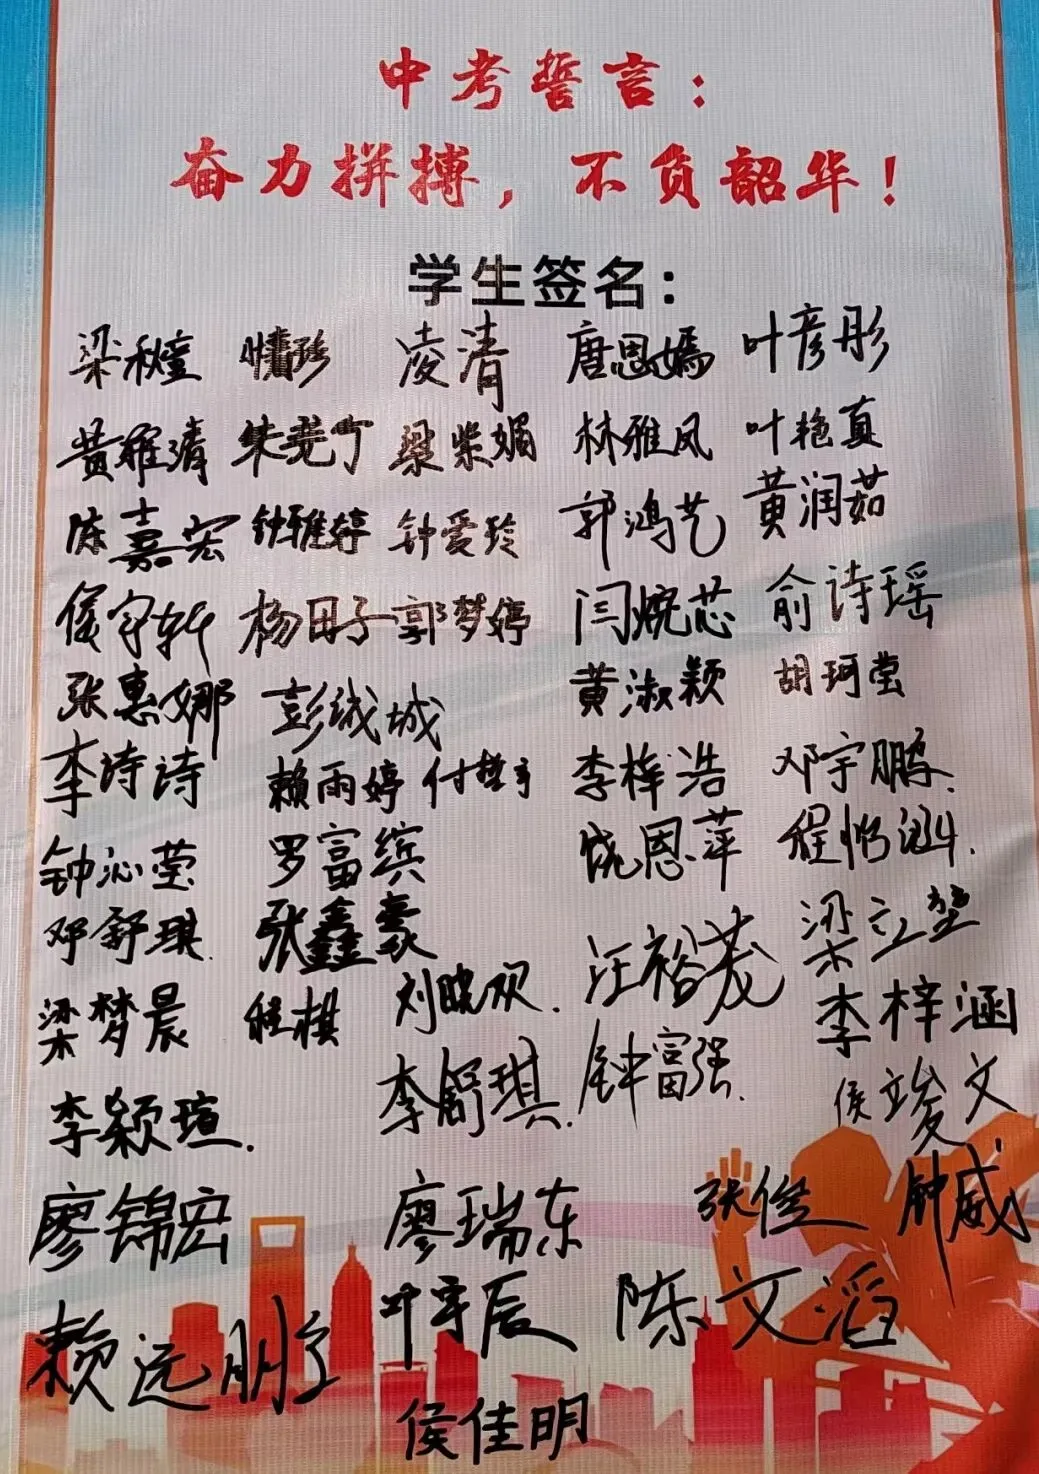 中考誓言：
奋力拼搏，不负韶华！
学生签名：
凌清 唐思嫣 叶彦彤
朱尧丁 梁紫媚 林雅风 叶艳真
陈嘉宏 钟雅婷 钟爱玲 郭鸿艺 黄润茹
侯宇轩 杨田子 郭梦婷 闫婉芯 俞诗瑶
张惠娜 彭城城 黄淑颖 胡珂莹
李诗诗 赖雨婷 李梓浩 邓宇鹏.
钟沁莹 罗富缤 饶恩萍
邓舒琪. 张鑫豪 汪裕茂
梁梦晨 程棋 刘晓欢. 李梓涵
李颖瑄. 李舒琪. 钟富强. 侯竣文
廖锦宏 廖瑞东 张俊 钟威
赖远鹏 叶宇辰 陈文滔
侯佳明